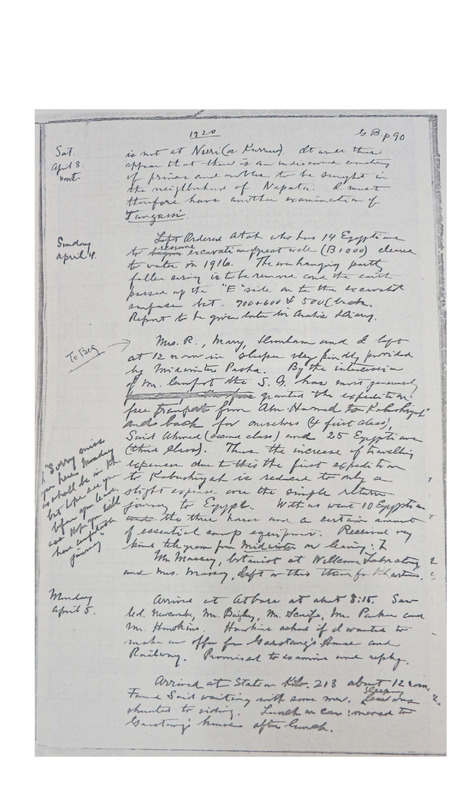 1920
G B p 90
Sat.
April 3
cont.
is not at Nuri (or Kurruw). It would thus
appear that there is an undiscovered cemetery
of princes and nobles to be sought in
the neighborhood of Napata. I must
therefore have another examination of
Tangassi.
Sunday
April 4.
Left Ordered Atah who has 14 Egyptians
to resume excavation of great well (B 1000) cleared
to water in 1916. The overhanging
fallen casing is to be removed and the earth
passed up the "E" side on to the excavated
surface bet. 700 + 600 & 500 (back.
Report to be given later in Arabic Diary.
To Beg
Mrs. R., Mary, Dunham and I left
at 12 noon in sleeper kindly provided
by Midwinter Pasha. By the intercession
of Mr. the S. G. has most generously
granted the expedition
free transport from Abu Hamed to Kabushiyah
and back for ourselves (4 first class),
Said Ahmed (second class) and 25 Egyptians
(third class). Thus the increase of travelling
expenses due to this the first expedition
to Kabushiyah is reduced to only a
slight expense over the simple return
journey to Egypt. With us went 10 Egyptians
and the three horses and a certain amount
of essential camp equipment. Received very
kind telegram from Midwinter on leaving:
"Sorry miss
you here Monday
as shall be in
but hope see you
before you leave
Hope you will
have comfortable
journey"
Mr. Massey, botanist at Wellcome Laboratory
and Mrs. Massey, left on this train for Khartum.
Monday
April 5.
Arrived at Atbara at about 8:15. Saw
Col. Newcombe, Mr. Bailey, Mr. Mr. Parker and
Mr. Hawkins. Hawkins asked if I wanted to
make an offer for Garstang's House and
Railway. Promised to examine and reply.
Arrived at Station Kilo 218 about 12 noon.
Found Said waiting with some men. Sleeper was
shunted to siding. Lunch in car: moved to
Garstang's house after lunch.